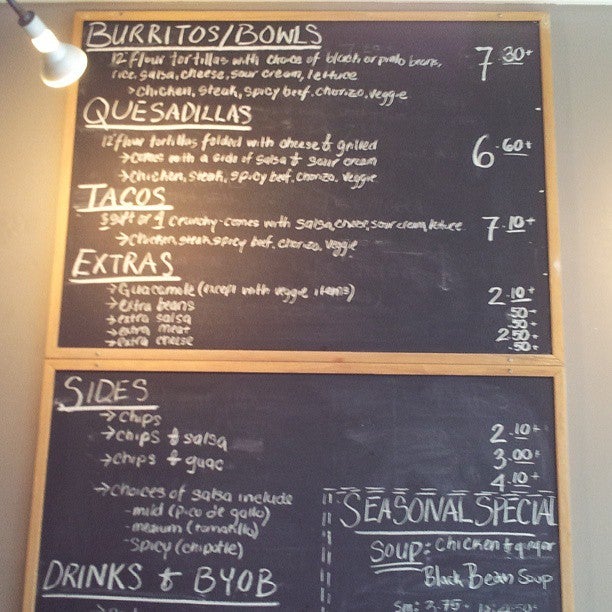 BURRITOS/BOWLS
12" flour tortillas with choice of black or pinto beans, 7.30+
rice, salsa, cheese, sour cream, lettuce
→ chicken, steak, spicy beef, chorizo, veggie
QUESADILLAS
12" flour tortillas folded with cheese & grilled 6.60+
→ comes with a side of salsa & sour cream
→ chicken, steak, spicy beef, chorizo, veggie
TACOS
3 soft or 4 crunchy - comes with salsa, cheese, sour cream, lettuce 7.10+
→ chicken, steak, spicy beef, chorizo, veggie
EXTRAS
→ Guacamole (except with veggie items) 2.10+
→ extra beans .50+
→ extra salsa .50+
→ extra meat 2.50+
→ extra cheese .50+
SIDES
→ chips 2.10+
→ chips & salsa 3.00+
→ chips & guac 4.10+
→ choices of salsa include
- mild (pico de gallo)
- medium (tomatillo)
- spicy (chipotle)
SEASONAL SPECIAL
SOUP: chicken
Black Bean Soup
sm: 2.75 -
DRINKS & BYOB